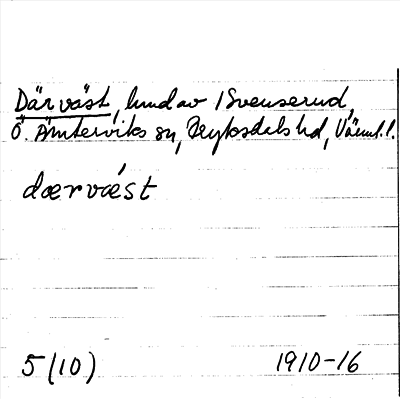 Där väst, hmd av 1 Svenserud,
Ö. Ämterviks sn, Fryksdals hd, Värml.l.
dærvǽst
5 (10) 1910-16